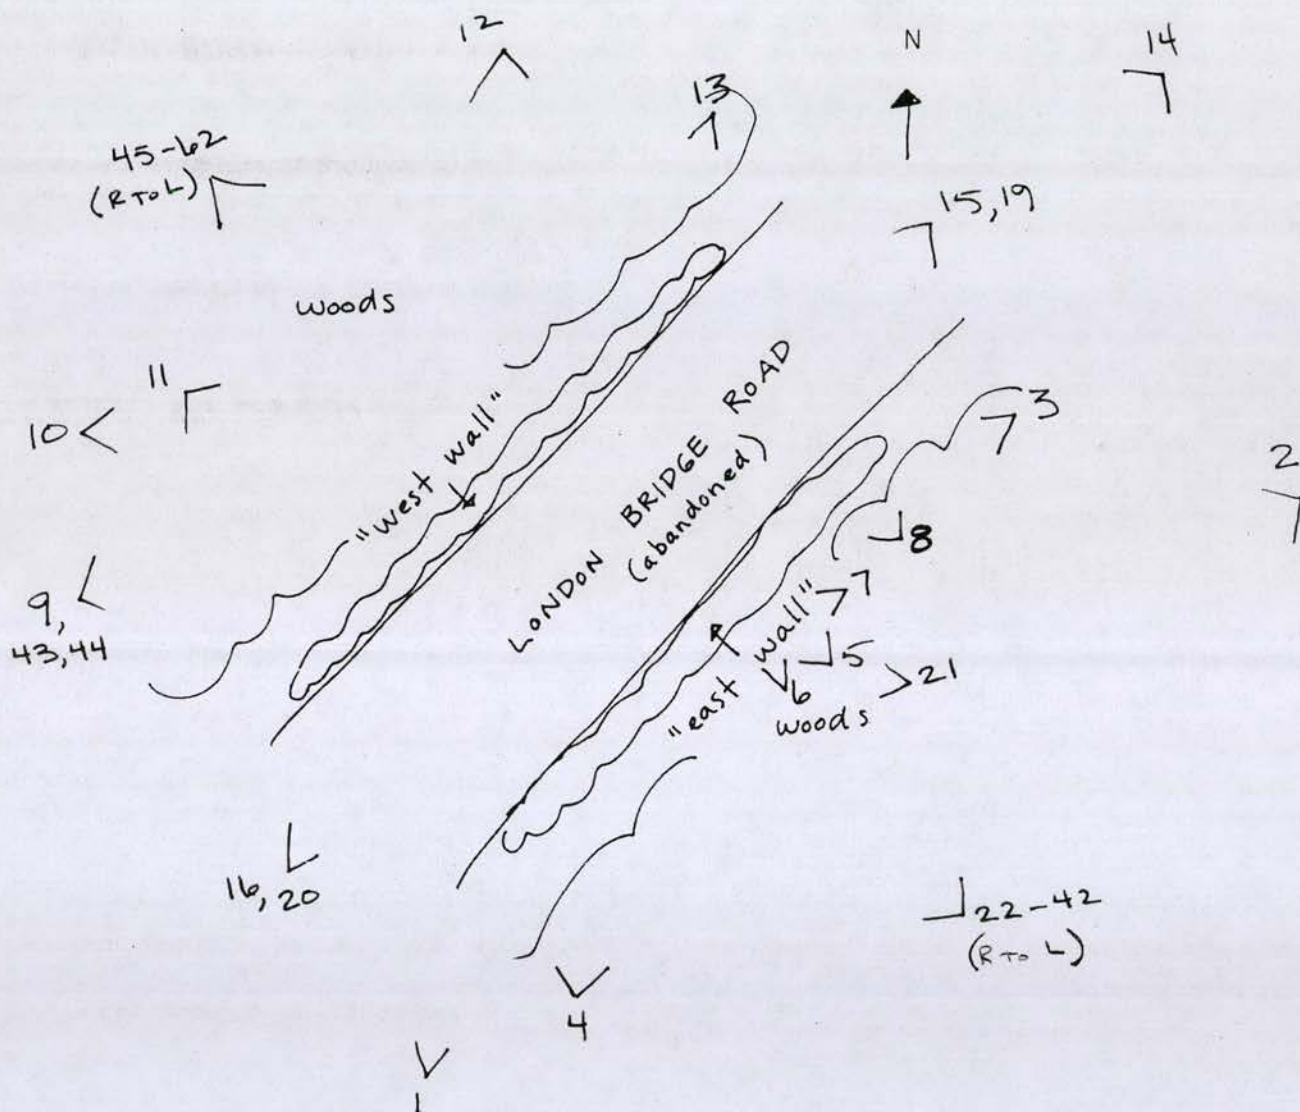 12
N
14
13
45-62
(R TO L)
15, 19
woods
11
10
3
2
"west wall"
LONDON BRIDGE ROAD
(abandoned)
8
9,
43, 44
7
"east wall"
5
6
21
woods
16, 20
22-42
(R TO L)
4
1